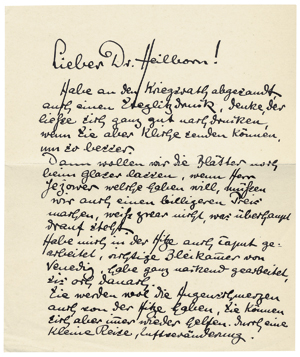 Lieber Dr. Heilborn!
Habe an den Kriegsrath abgesandt
auch einen Steglitzdruck, denke der
ließe sich ganz gut nachdrucken,
wenn Sie aber Klishe senden können,
um so besser.
Dann wollen wir die Blätter noch
beim Glaser lassen, wenn Herr
welche haben will, müssten
wir auch einen billigeren Preis
machen, weiß zwar nicht, was überhaupt
drauf steht.
Habe mich in der Hitze auch caput ge-
arbeitet, richtige Bleikammer von
Venedig, habe ganz nackend gearbeitet,
danach.
Sie werden wol die Augenschmerzen
auch von der Hitze haben, Sie können
sich aber immer wieder helfen durch eine
kleine Reise, Luftveränderung.